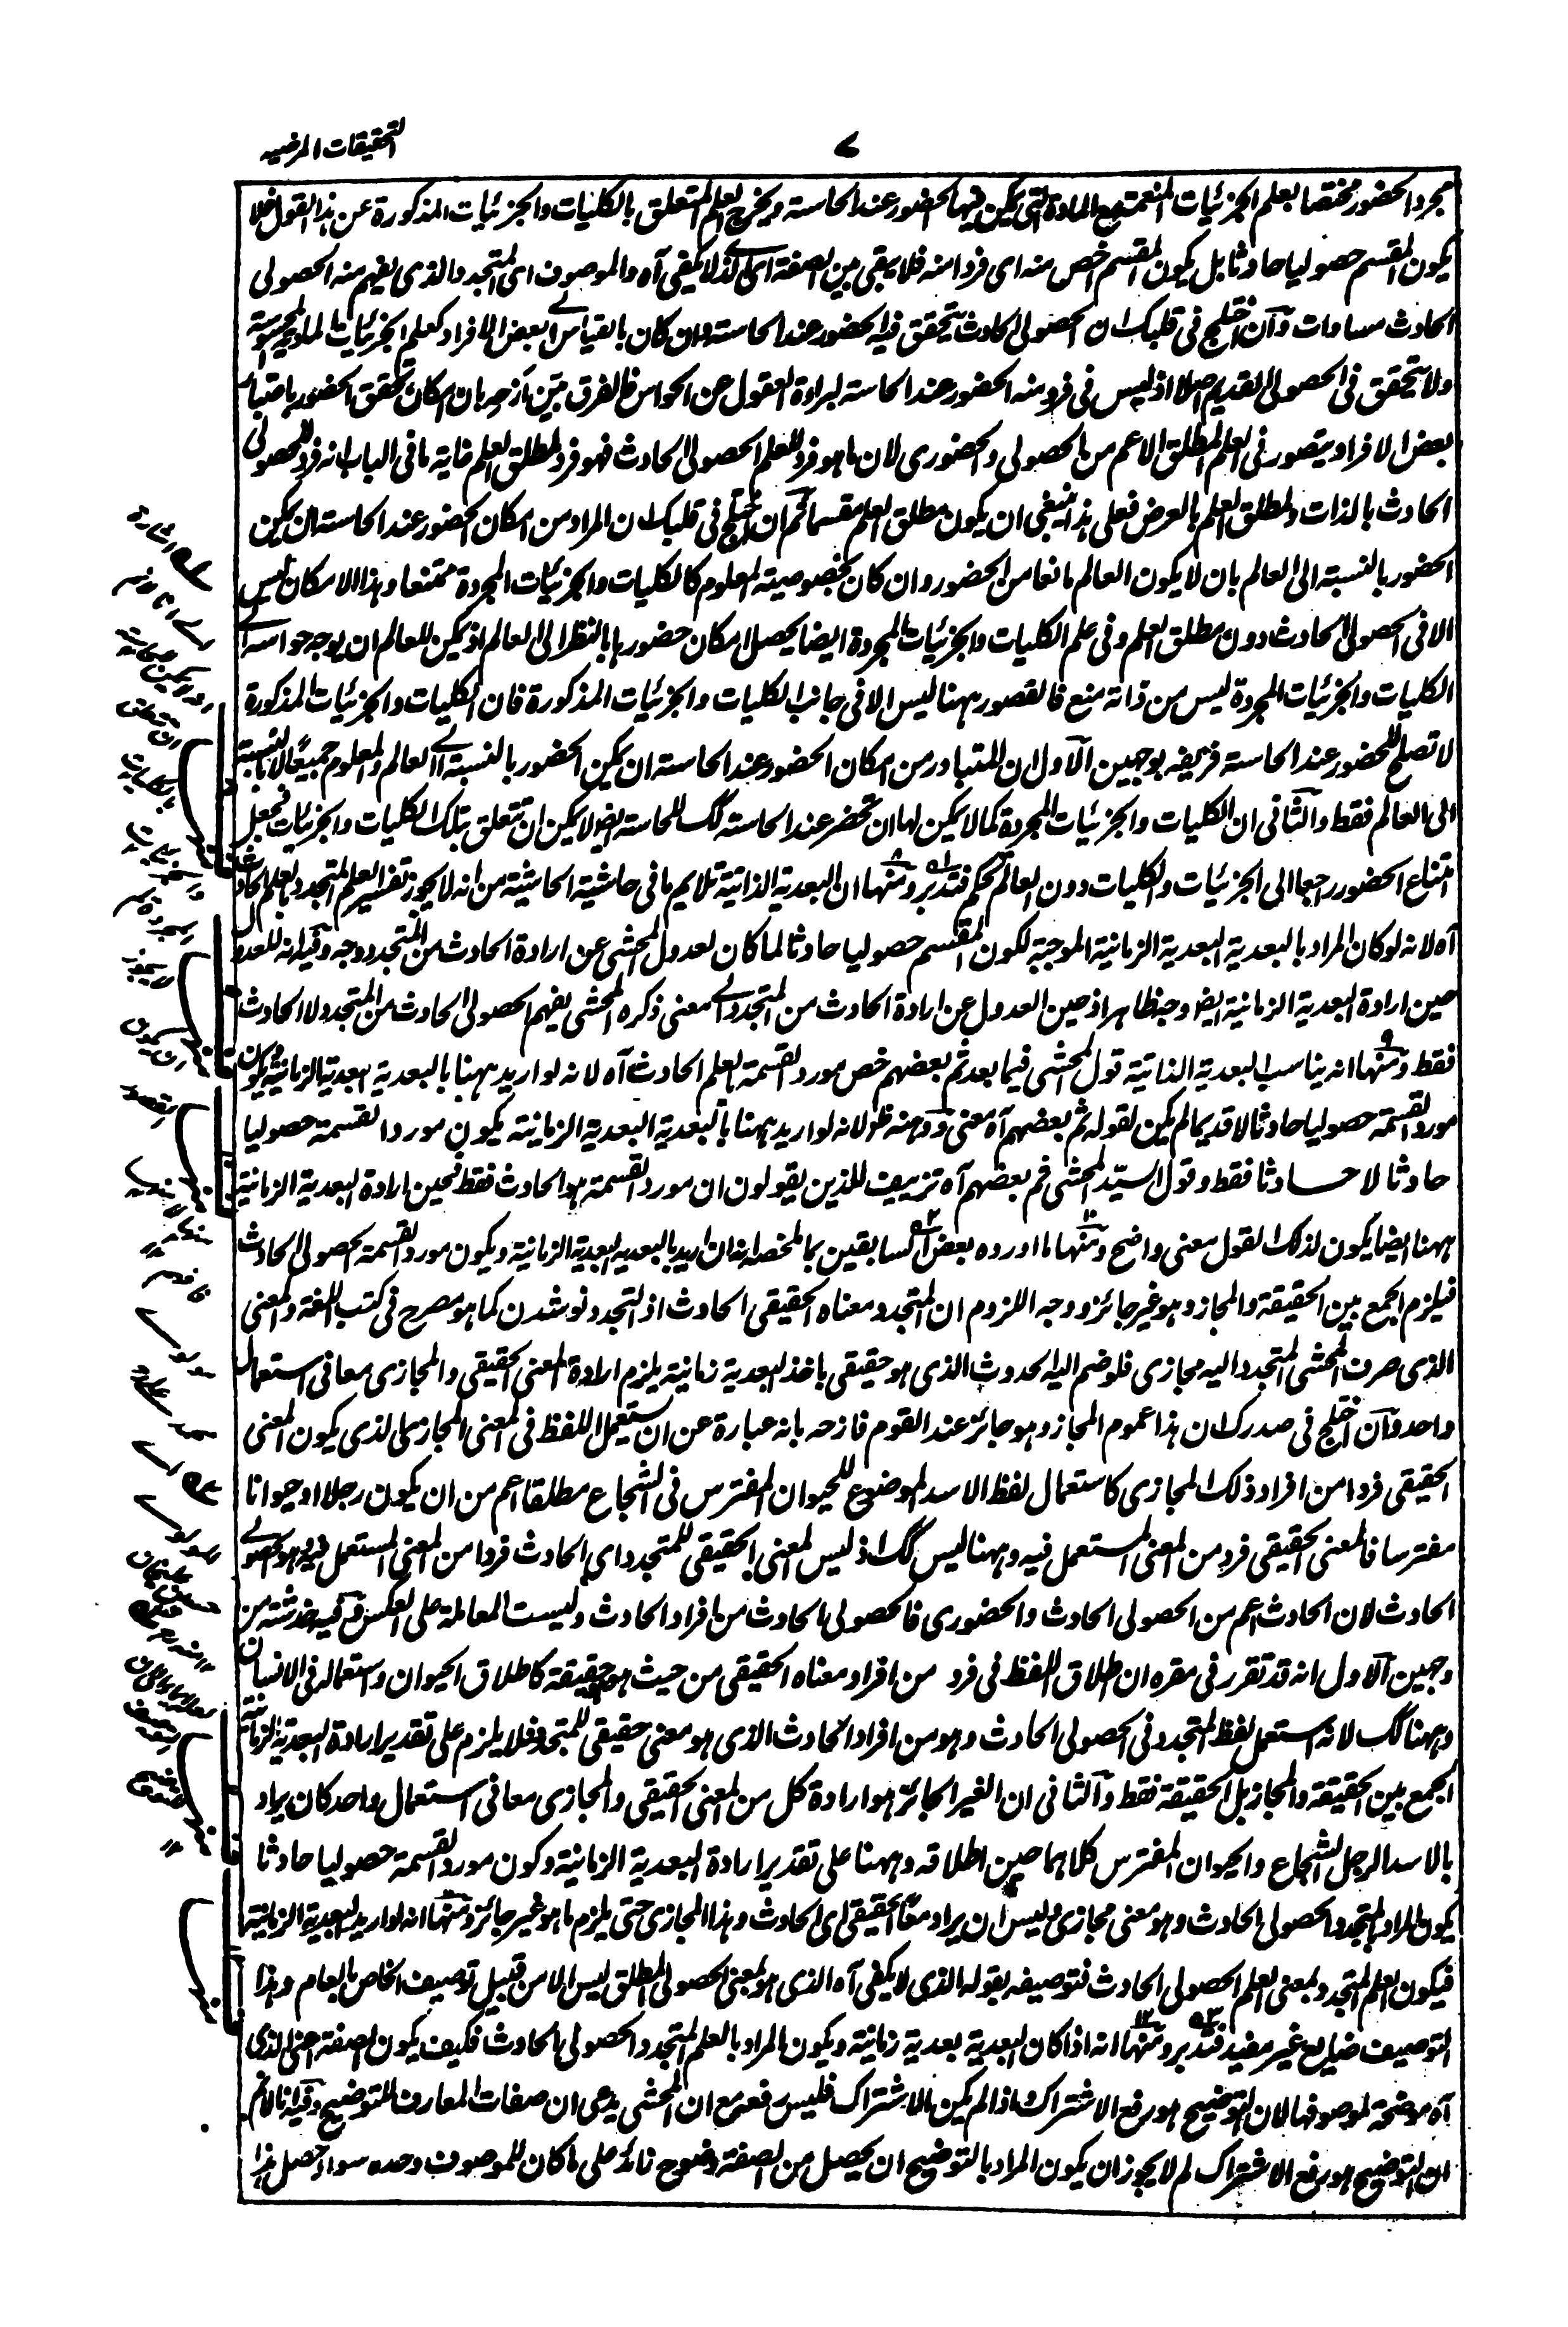 التحقيقات المرضيه
٧
مجرد الحضور مختصا بعلم الجزئيات المنغمسة مع المادة التى يمكن فيها الحضور عند الحاسة ويخرج العلم المتعلق بالكليات والجزئيات المذكورة عن هذا القول فلا
يكون المقسم حصوليا حادثا بل يكون المقسم اخص منه اى فردا منه فلا يبقى بين الصفة اى الذى لا يكفى آه والموصوف اى المتجدد الذى يفهم منه الحصولى
الحادث مساوات وآن اختلج فى قلبك ان الحصولى الحادث يتحقق فيه الحضور عند الحاسة وان كان بالقياس الى بعض الافراد كعلم الجزئيات المادية المحسوسة
ولا يتحقق فى الحصولى القديم اصلا اذ ليس فى فرد منه الحضور عند الحاسة لبراءة العقول عن الحواس فالفرق بيّن فازحه بان امكان تحقق الحضور باعتبار
بعض الافراد يتصور فى العلم المطلق الاعم من الحصولى والحضورى لان ما هو فرد للعلم الحصولى الحادث فهو فرد لمطلق العلم غاية ما فى الباب انه فرد للحصولى
الحادث بالذات ولمطلق العلم بالعرض فعلى هذا ينبغى ان يكون مطلق العلم مقسما ثم ان اختلج فى قلبك ان المراد من امكان الحضور عند الحاسة ان يمكن
الحضور بالنسبة الى العالم بان لا يكون العالم مانعا من الحضور وان كان بخصوصية المعلوم كالكليات والجزئيات المجردة ممتنعا وهذا الامكان ليس
الا فى الحصولى الحادث دون مطلق العلم وفى علم الكليات والجزئيات المجردة ايضا يحصل امكان حضورها بالنظر الى العالم اذ يمكن للعالم ان يوجه حواسه الى
الكليات والجزئيات المجردة ليس من ذاته منع فالقصور ههنا ليس الا فى جانب الكليات والجزئيات المذكورة فان الكليات والجزئيات المذكورة
لا تصلح للحضور عند الحاسة فزيفه بوجهين الآول ان المتبادر من امكان الحضور عند الحاسة ان يمكن الحضور بالنسبة الى العالم والمعلوم جميعًا لا بالنسبة
الى العالم فقط والثانى ان الكليات والجزئيات المجردة كما لا يمكن لها ان تحضر عند الحاسة كك للحاسة ايضا لا يمكن ان تتعلق بتلك الكليات والجزئيات فجعل
امتناع الحضور راجعا الى الجزئيات والكليات دون العالم تحكم فتدبر ومنها ان البعدية الذاتية تلايم ما فى حاشية الحاشية من انه لا يجوز تفسير العلم المتجدد بالعلم الحادث
آه لانه لو كان المراد بالبعدية البعدية الزمانية الموجبة لكون المقسم حصوليا حادثا لما كان لعدول المحشى عن ارادة الحادث من المتجدد وجه وفيه انه للعدول
حين ارادة البعدية الزمانية ايضا وجها ظاهرا اذ حين العدول عن ارادة الحادث من المتجدد الى معنى ذكره المحشى يفهم الحصولى الحادث من المتجدد لا الحادث
فقط ومنها انه يناسب البعدية الذاتية قول المحشى فيما بعد ثم بعضهم خص مورد القسمة العلم الحادث آه لانه لو اريد ههنا بالبعدية البعدية الزمانية ويكون
مورد القسمة حصوليا حادثا لا قديما لم يكن لقوله ثم بعضهم آه معنى ووهنه ظ لانه لو اريد ههنا بالبعدية البعدية الزمانية يكون مورد القسمة حصوليا
حادثا لا حادثا فقط وقول السيّد المحشى ثم بعضهم آه تزييف للذين يقولون ان مورد القسمة هو الحادث فقط فحين ارادة البعدية الزمانية
ههنا ايضا يكون لذلك القول معنى واضح ومنها ما اورده بعض السابقين بما لمخصه انه ان اريد بالبعدية البعدية الزمانية ويكون مورد القسمة الحصولى الحادث
فيلزم الجمع بين الحقيقة والمجاز وهو غير جائز ووجه اللزوم ان المتجدد معناه الحقيقى الحادث اذ التجدد نو شدن كما هو مصرح فى كتب اللغة والمعنى
الذى صرف المحشى المتجدد اليه مجازى فلو ضم اليه الحدوث الذى هو حقيقى باخذ البعدية زمانية يلزم ارادة المعنى الحقيقى والمجازى معا فى استعمال
واحد وآن اختلج فى صدرك ان هذا عموم المجاز وهو جائز عند القوم فازحه بانه عبارة عن ان يستعمل اللفظ فى المعنى المجازى الذى يكون المعنى
الحقيقى فردا من افراد ذلك المجازى كاستعمال لفظ الاسد الموضوع للحيوان المفترس فى الشجاع مطلقا اعم من ان يكون رجلا او حيوانا
مفترسا فالمعنى الحقيقى فرد من المعنى المستعمل فيه وههنا ليس كك اذ ليس المعنى الحقيقى للمتجدد اى الحادث فردا من المعنى المستعمل فيه وهو الحصولى
الحادث لان الحادث اعم من الحصولى الحادث والحضورى فالحصولى الحادث من افراد الحادث وليست المعاملة على العكس وفيه خدشة من
وجهين الآول انه قد تقرر فى مقره ان اطلاق اللفظ فى فرد من افراد معناه الحقيقى من حيث هو حقيقة كاطلاق الحيوان واستعماله فى الانسان
وههنا كك لانه استعمل لفظ المتجدد فى الحصولى الحادث وهو من افراد الحادث الذى هو معنى حقيقى للمتجدد فلا يلزم على تقدير ارادة البعدية الزمانية
الجمع بين الحقيقة والمجاز بل الحقيقة فقط والثانى ان الغير الجائز هو ارادة كل من المعنى الحقيقى والمجازى معا فى استعمال واحد كان يراد
بالاسد الرجل الشجاع والحيوان المفترس كلاهما حين اطلاقه وههنا على تقدير ارادة البعدية الزمانية وكون مورد القسمة حصوليا حادثا
يكون المراد بالمتجدد الحصولى الحادث وهو معنى مجازى وليس ان يراد معناه الحقيقى اى الحادث وهذا المجازى حتى يلزم ما هو غير جائز ومنها انه لو اريد البعدية الزمانية
فيكون العلم المتجدد بمعنى العلم الحصولى الحادث فتوصيفه بقوله الذى لا يكفى آه الذى هو بمعنى الحصولى المطلق ليس الا من قبيل توصيف الخاص بالعام وهذا
التوصيف ضايع غير مفيد فتدبر ومنها انه اذا كان البعدية بعدية زمانية ويكون المراد بالعلم المتجدد الحصولى الحادث فكيف يكون الصفة اعنى الذى
آه موضحة لموصوفها لان التوضيح هو رفع الاشتراك واذا لم يكن الاشتراك فليس رفعه مع ان المحشى يدعى ان صفات المعارف للتوضيح وفيه انا لا نم
ان التوضيح هو رفع الاشتراك لم لا يجوز ان يكون المراد بالتوضيح ان يحصل من الصفة وضوح زائد على ما كان للموصوف وحده سواء حصل هذا